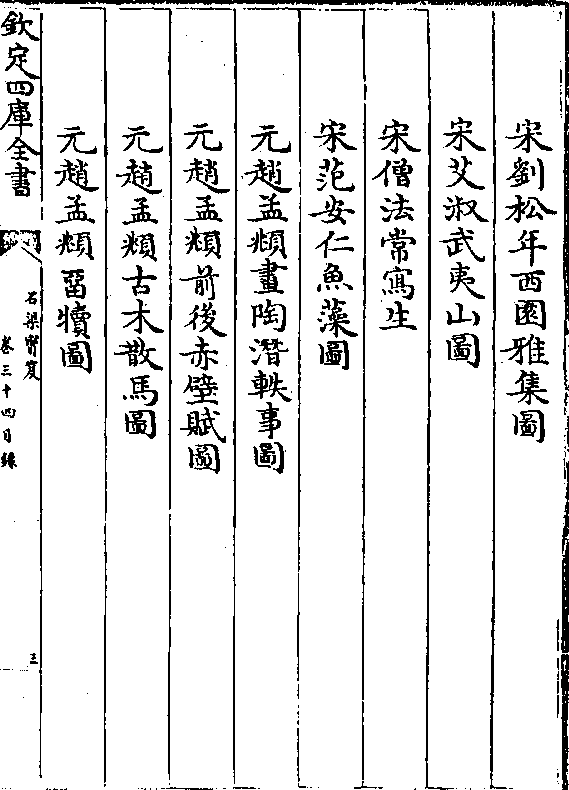 宋劉松年西園雅集圖
宋艾淑武夷山圖
宋僧法常寫生
宋范安仁魚藻圖
元趙孟頫畫陶潛軼事圖
元趙孟頫前後赤壁賦圖
元趙孟頫古木散馬圖
元趙孟頫畱犢圖
欽定四庫全書
石渠寳笈
卷三十四目録
三